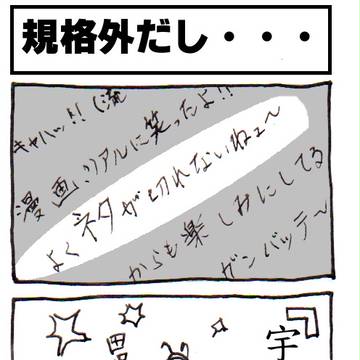 規格外だし・・・
キャハッ!!(滝
漫画、リアルに笑ったよ!!
よくネタが切れないねェ〜
からも楽しみにしてる
ガンバッテ〜
宇